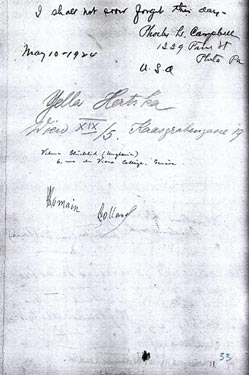 I shall not ever forget this day—
Phoebe L. Campbell
May 10-1924
1229 Pine St
Phila Pa
U.S.A
Yella Hertzka
Wien XIX/5. Kaasgrabengasse 19
Vilma Glücklich (Hungaria)
6, rue du Vieux Collège, Genève
Romain
Rolland
33